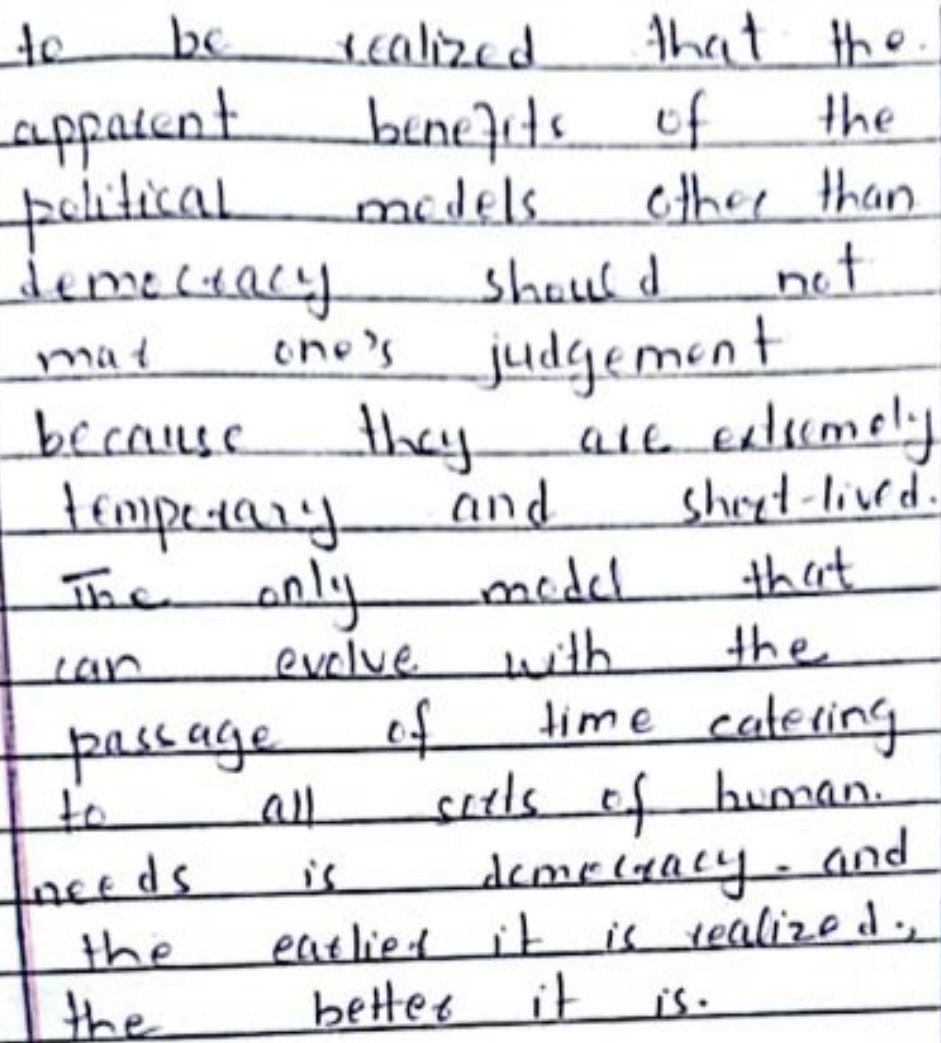 to be realized that the
apparent benefits of the
political models other than
democracy should not
mar one's judgement
because they are extremely
temporary and short-lived.
The only model that
can evolve with the
passage of time catering
to all sorts of human.
needs is democracy - and
the earlier it is realized.,
the better it is.